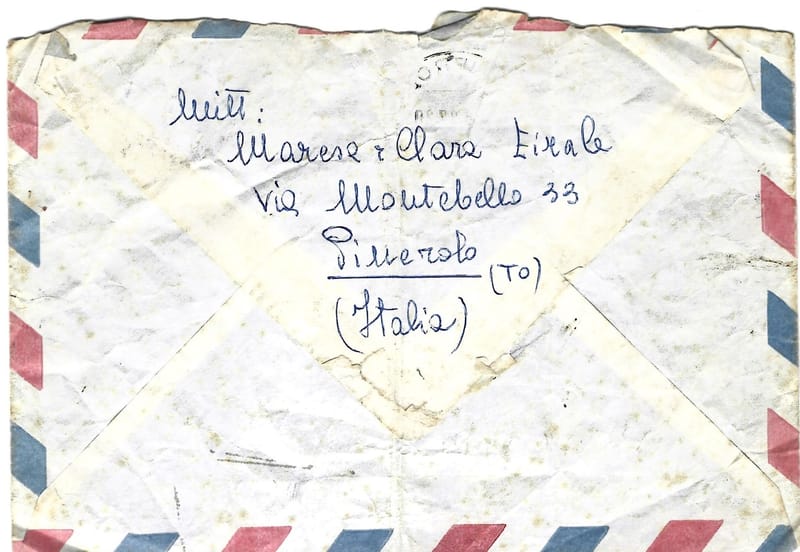 Mitt:
Maresa e Clara Eirale
Via Montebello 33
Pinerolo
(TO)
(Italia)